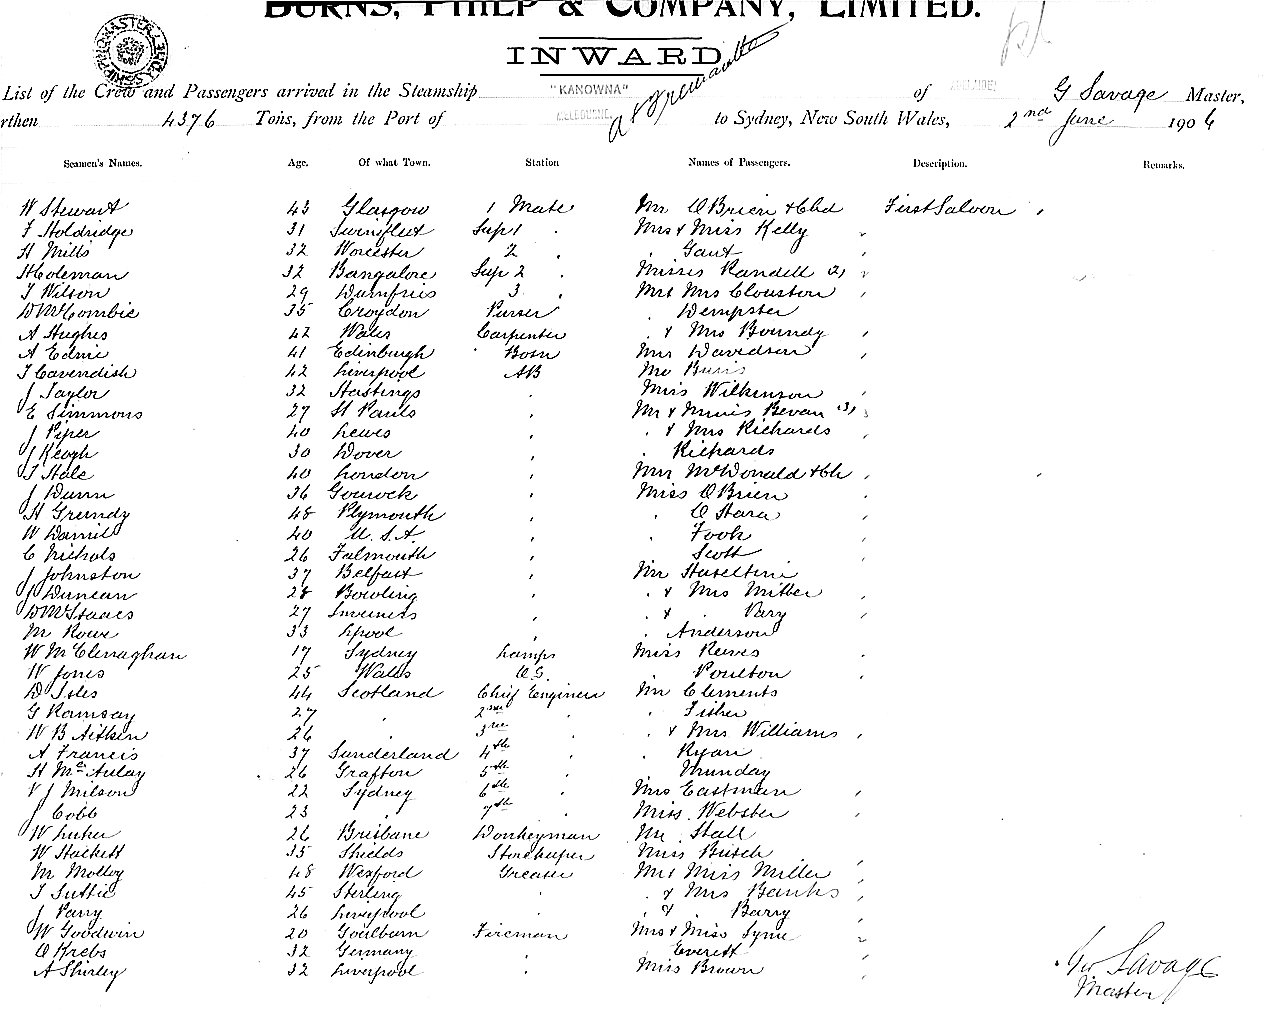 BURNS, PHILP & COMPANY, LIMITED.
INWARD
List of the Crew and Passengers arrived in the Steamship "KANOWNA" of G Savage Master,
rthen 4376 Tons, from the Port of MELBOURNE. & Fremantle to Sydney, New South Wales, 2nd June 1904
Seamen's Names. Age. Of what Town. Station Names of Passengers. Description. Remarks.
W Stewart 43 Glasgow 1 Mate Mr O'Brien & Chd First Saloon
F Holdridge 31 Swinefleet Sup 1 Mrs & Miss Kelly
H Mills 32 Worcester 2 Gant
H Coleman 32 Bangalore Sup 2 Misses Randell (2)
T Wilson 29 Dumfries 3 Mr & Mrs Clouston
D McCombie 35 Croydon Purser Dempster
A Hughes 42 Wales Carpenter & Mrs Boundy
A Edmie 41 Edinburgh Bosn Mrs Davidson
T Cavendish 42 Liverpool AB Mr Burns
J Taylor 32 Hastings Miss Wilkinson
E Simmons 27 St Pauls Mr & Misses Bevan (3)
J Piper 40 Lewes & Mrs Richards
J Keogh 30 Dover Richards
T Hale 40 London Mrs McDonald & Ch
J Dunn 36 Gourock Miss O'Brien
H Grundy 48 Plymouth O'Hara
W Daniel 40 U.S.A. Fook
C Nichols 26 Falmouth Scott
J Johnston 37 Belfast Mr Haseltine
J Duncan 28 Bowling & Mrs Miller
D McIsaacs 27 Inverness & Pary
M Rowe 33 Lpool Anderson
W McClenaghan 17 Sydney Lamps Miss Reeves
W Jones 25 Wales O.S. Poulton
D Isles 44 Scotland Chief Engineer Mr Clements
G Ramsay 27 2nd Fisher
W B Aitken 26 3rd & Mrs Williams
A Francis 37 Sunderland 4th Ryan
H McAulay 26 Grafton 5th Munday
V J Milson 22 Sydney 6th Mrs Eastman
J Cobb 23 7th Miss Webster
W Luker 26 Brisbane Donkeyman Mr Stall
W Hackett 35 Shields Storekeeper Miss Butch
M Molloy 48 Wexford Greaser Mr & Miss Miller
T Suttie 45 Sterling & Mrs Banks
J Parry 26 Liverpool & Barry
W Goodwin 20 Goulburn Fireman Mrs & Miss Syme
O Krebs 32 Germany Everett
A Shirley 32 Liverpool Miss Brown
Geo Savage
Master